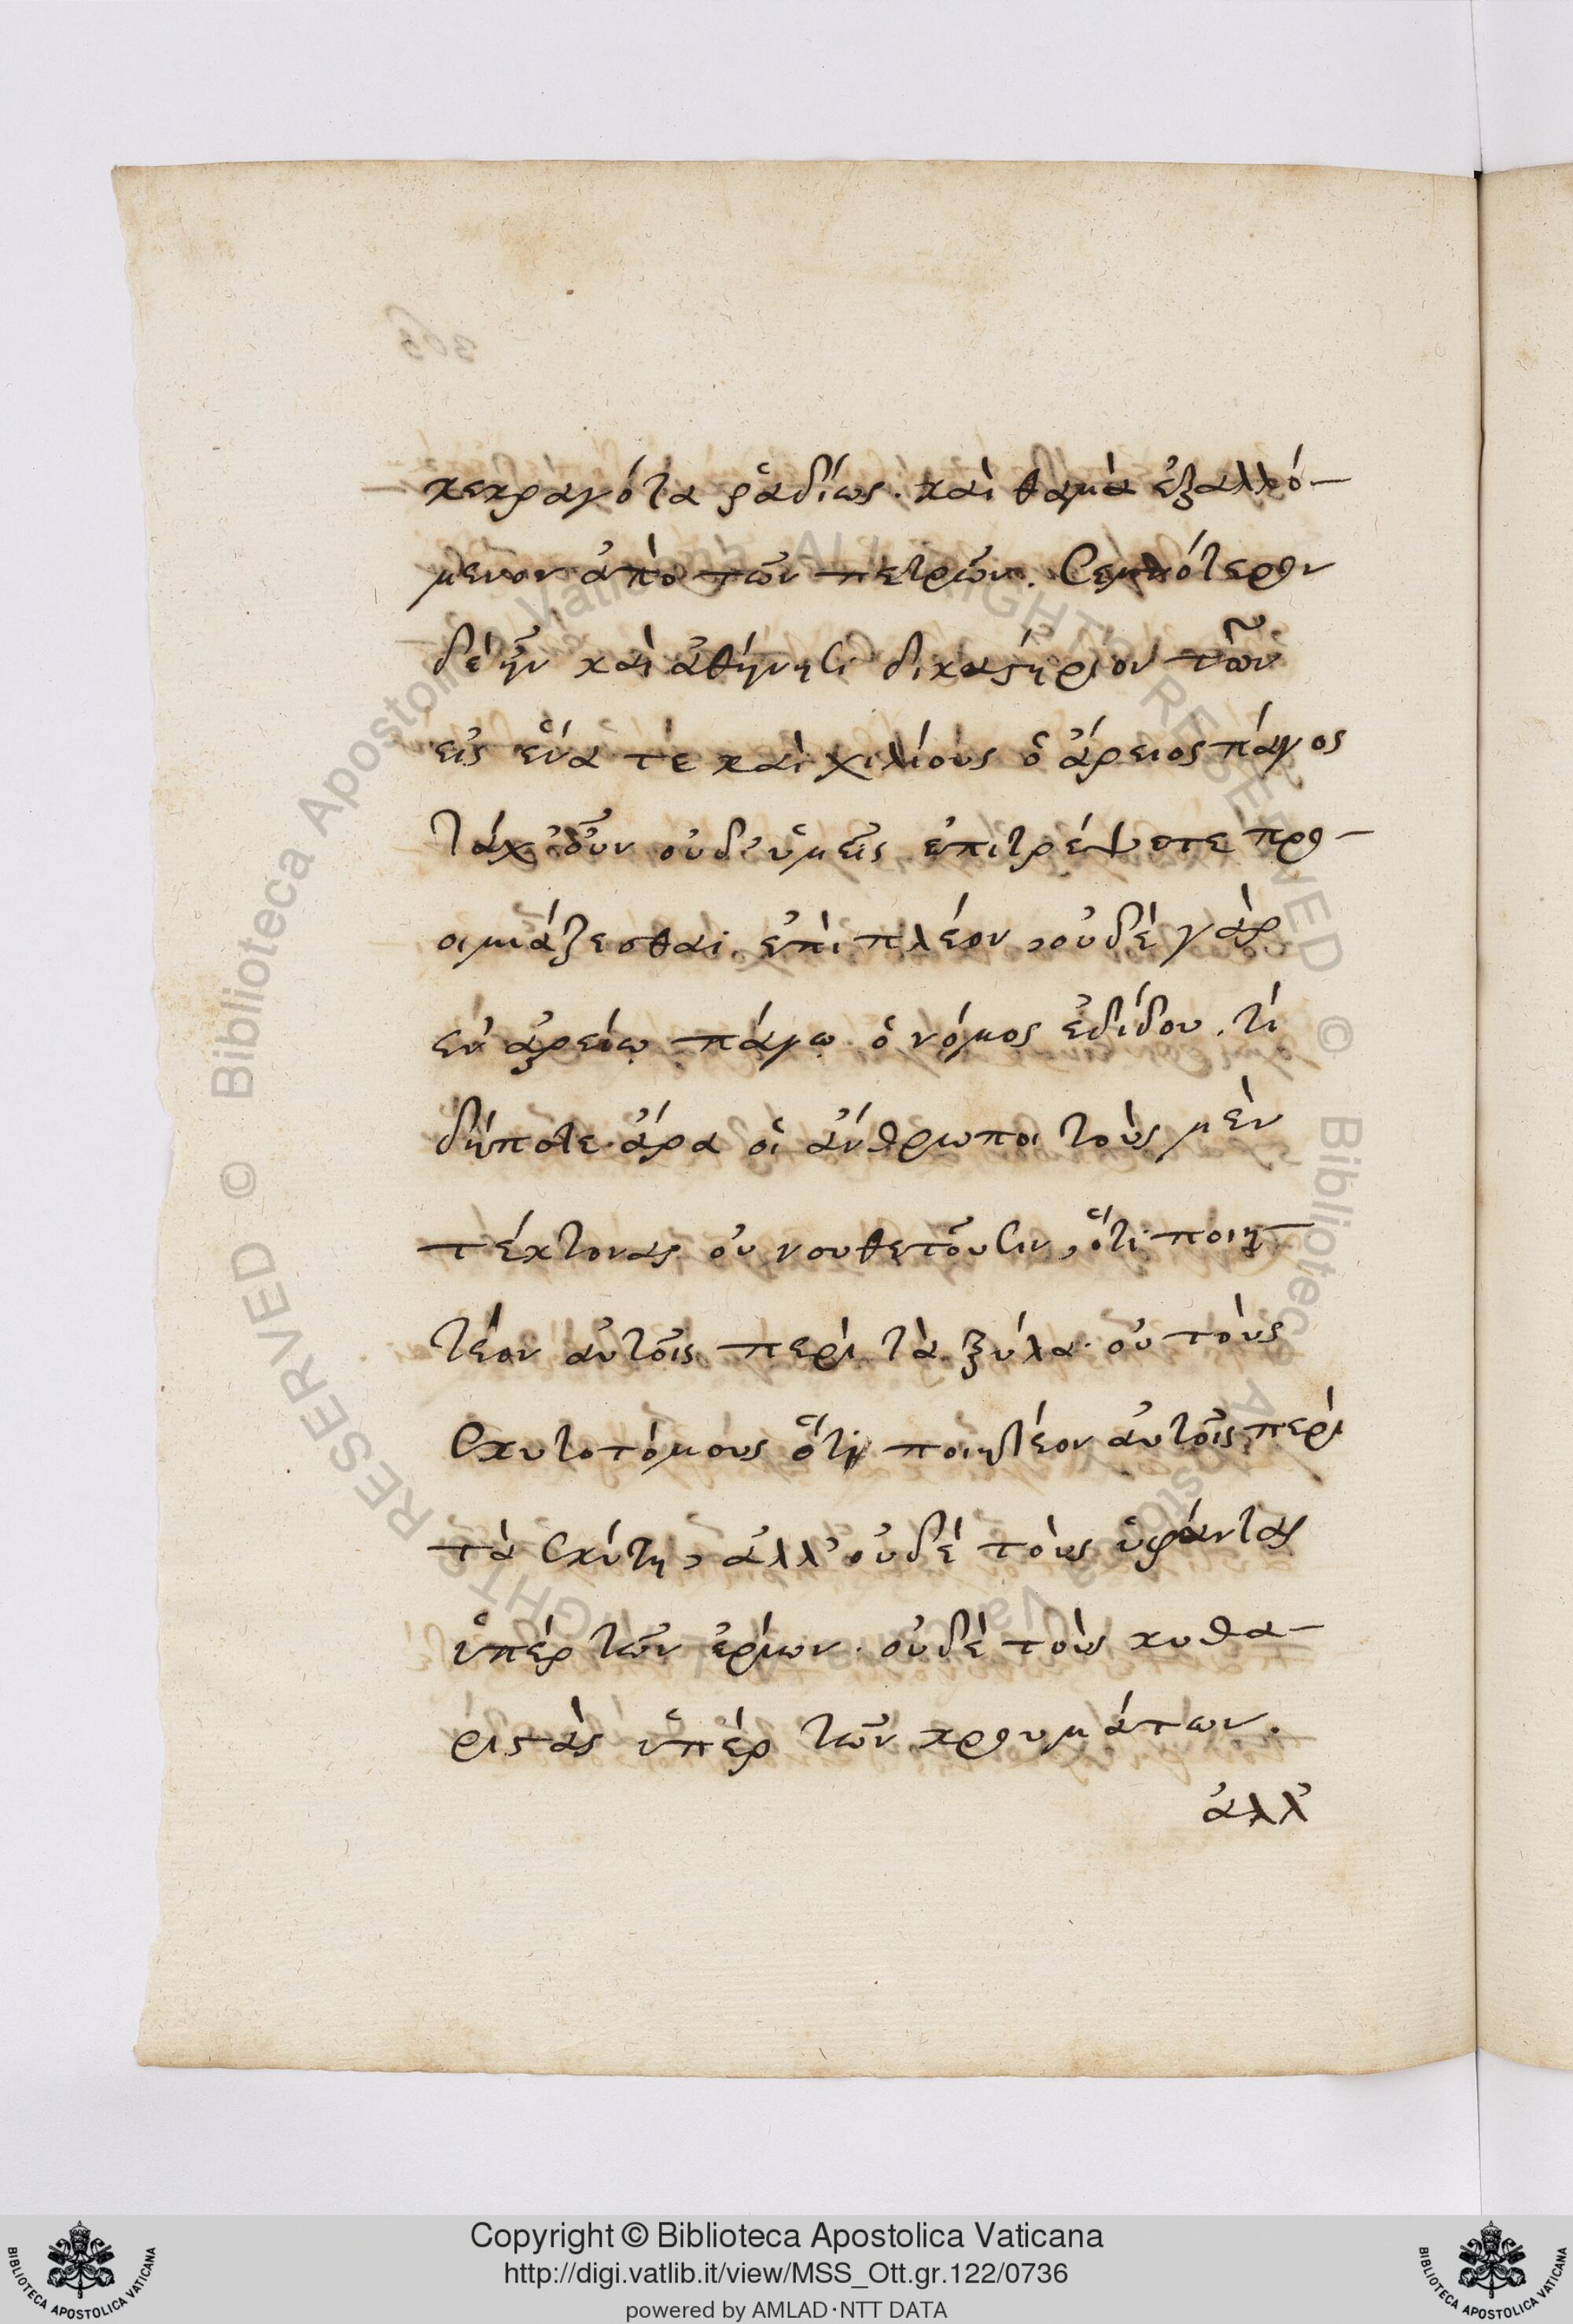 κεκραγότα ῥαδίως. καὶ θαμὰ ἐξαλλό-
μενον ἀπὸ τῶν πετρῶν. σεμνότερον
δὲ ἦν καὶ ἀθήνησι δικαστήριον τῶν
εἰς ἕνα τε καὶ χιλίους ὁ ἄρειος πάγος
τάχ' οὖν οὐδ' ὑμεῖς ἐπιτρέψετε προ-
οιμιάζεσθαι ἐπὶ πλέον, οὐδὲ γὰρ
ἐν ἀρείῳ πάγῳ ὁ νόμος ἐδίδου. τί
δήποτε ἄρα οἱ ἄνθρωποι τοὺς μὲν
τέκτονας οὐ νουθετοῦσιν, ὅτι ποιη-
τέον αὐτοῖς περὶ τὰ ξύλα. οὐ τοὺς
σκυτοτόμους ὅτι ποιητέον αὐτοῖς περὶ
τὰ σκύτη, ἀλλ' οὐδὲ τοὺς ὑφάντας
ὑπὲρ τῶν ἐρίων. οὐδὲ τοὺς κυθα-
ριστὰς ὑπὲρ τῶν κρουμάτων.
ἀλλ'
Copyright © Biblioteca Apostolica Vaticana
http://digi.vatlib.it/view/MSS_Ott.gr.122/0736
powered by AMLAD·NTT DATA